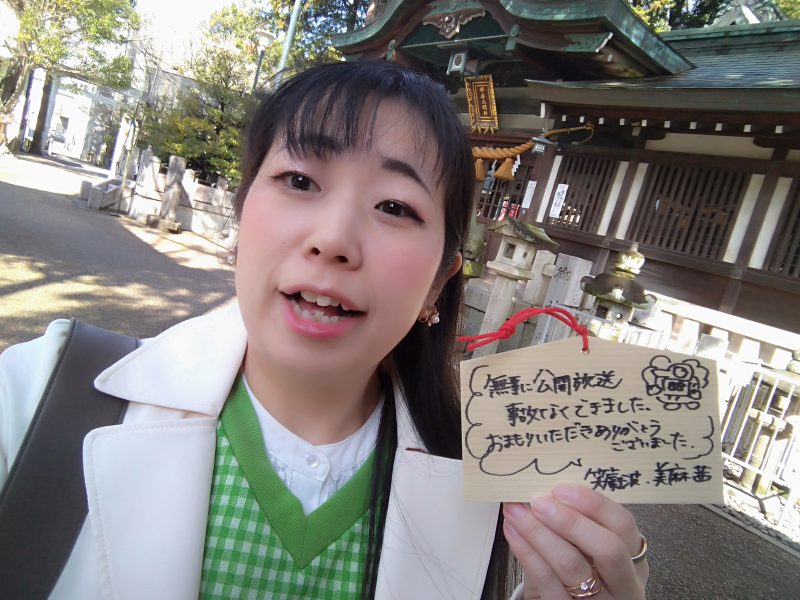 無事に公開放送
事故なくできました。
おまもりいただきありがとう
ございました。